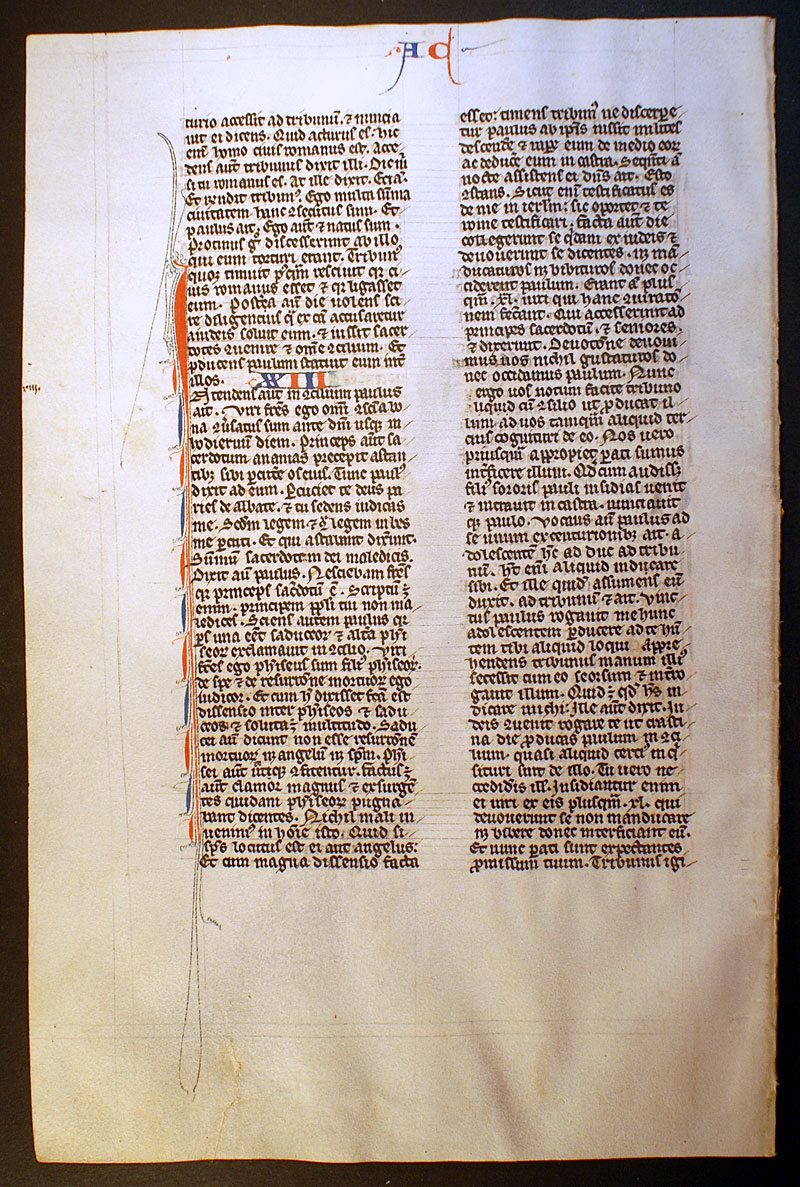 AC
turio accessit ad tribunū. & nuncia
uit ei dicens. Quid acturus es. hic
eni homo ciuis romanus est. Acce
dens aut tribunus dixit illi. Dic m
si tu romanus es. At ille dixit. Etiā.
Et rndit tribun. Ego multa sūma
ciuitatem hanc secutus sum. Et
paulus ait. Ego aut & natus sum.
Protinus g discesserunt ab illo
qui eum torturi erant. Tribun
quoq timuit pqm resciuit qr ci
uis romanus esset & qr ligasset
eum. Postea aut die uolens sci
re diligencius q ex cā accusaretur
a iudeis soluit eum. & iussit sacer
dotes quenire & ome cilium. Et
pducens paulum statuit eum int
illos. XXIII
Atendens aut in cilium paulus
ait. Viri frēs ego omi sciā bo
na usatus sum ante dm usq in
hodiernū diem. Princeps aut sa
cerdotum ananias precepit astan
tib sibi pcute os eius. Tunc paul
dixit ad eum. Pcuciet te deus pa
ries de albate. & tu sedens iudicas
me. Scdm legem & c legem iubes
me pcuti. Et qui astabant dixnt.
Sūmū sacerdotem dei maledicis.
Dixit au paulus. Nesciebam frēs
qr princeps sacdotū ē. Scriptū
enim. principem ppli tui non ma
ledices. Sciens autem paulus qr
ps una eēt saduceor & altā phi
seor exclamauit in cilio. Viri
frēs ego phiseus sum fili phiseor.
de spe & de resurtone mortuor ego
iudicor. Et cum h dixisset fcā est
dissensio inter phiseos & sadu
ceos & soluta multitudo. Sadu
cei au dicunt non esse resurtonē
mortuor n angelū n spm. Phi
sei aut utq fitentur. factus
aut clamor magnus & exsurgen
tes quidam phiseor pugna
bant dicentes. Nichil mali in
uenim in hoie isto. Quid si
sps locutus est ei aut angelus:
Et cum magna dissensio facta
esset: timens tribun ne discerpe
tur paulus ab ipis iussit milites
descende & rape eum de medio eor
ac deduce eum in castra. Sequti ā
nocte assistens ei dns ait. Esto
stans. Sicut eni testificatus es
de me in ierlm: sic oportet & te
rome testificari. facta aut die
collegerunt se qdam ex iudeis &
deuouerunt se dicentes. n mā
ducaturos n bibituros donec oc
ciderent paulum. Erant ā plus
qm .xl. uiri qui hanc iurato
nem fecant. Qui accesserunt ad
principes sacerdotū & seniores.
& dixerunt. Deuotone deuoui
mus nos nichil gustaturos do
nec occidamus paulum. Nunc
ergo uos notum facite tribuno
cū silio ut pducat il
lum ad uos tamqm aliquid cer
cius cognituri de eo. Nos uero
priusqm appropiet pati sumus
intficere illum. Qd cum audiss
fili sororis pauli insidias uenit
& intrauit in castra. nunciauit
q paulo. Vocans au paulus ad
se unum ex centurionib ait. A
dolescentē hc ad duc ad tribu
nū. ht eni aliquid indicare
sibi. Et ille quid assumens eū
duxit. ad tribunū & ait. Vinc
tus paulus rogauit me hunc
adolescentem pducere ad te hn
tem tibi aliquid loqui appre
hendens tribunus manum illi
secessit cum eo seorsum & intro
gauit illum. Quid qd hs in
dicare michi: Ille aut dixit. Iu
deis uenit rogare te ut crasti
na die pducas paulum in ci
lium. quasi aliquid certi in q
situri sint de illo. Tu uero ne
credidis ill. Insidiantur enim
ei uiri ex eis plusqm .xl. qui
deuouerunt se non manducare
n bibere donec interficiant eū.
Et nunc pati sunt expectantes
pmissum tuum. Tribunus igi